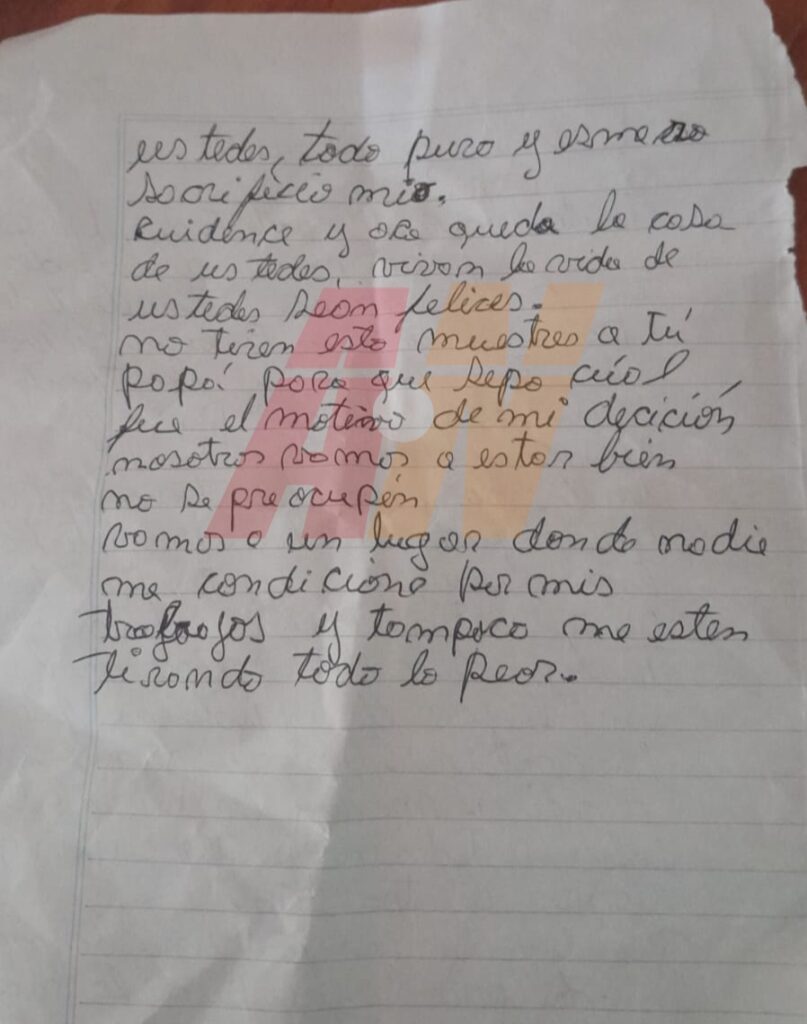 ustedes, todo puro y esmero
sacrificio mio.
Cuidence y aca queda la casa
de ustedes, vivan la vida de
ustedes sean felices.
no tiren esto muestres a tú
papá para que sepa cúal
fue el motivo de mi decición
nosotros vamos a estar bien
no se preocupén
vamos a un lugar donde nadie
me condicione por mis
trabajos y tampoco me esten
tirando todo lo peor.
AN